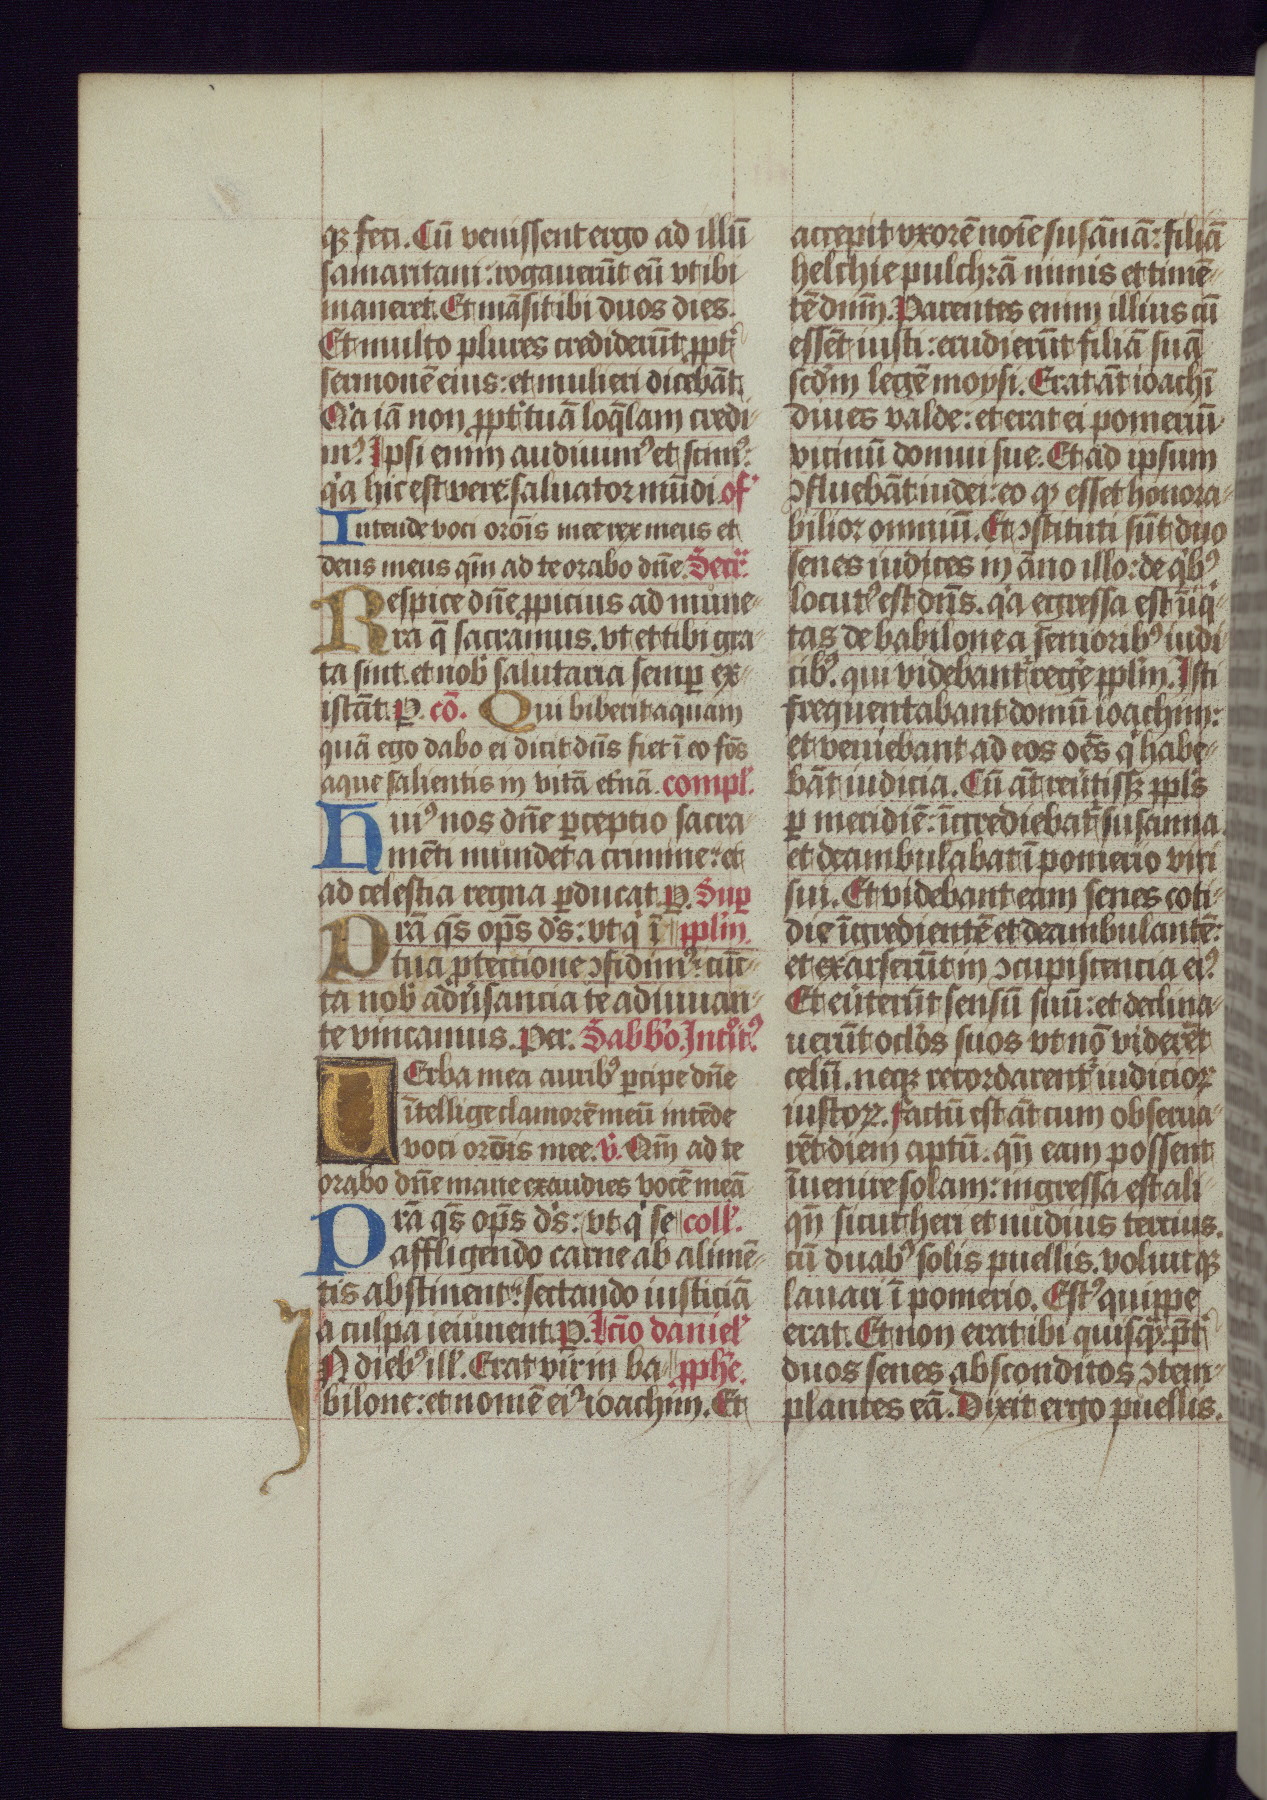 qꝫ feci. Cū venissent ergo ad illū
samaritani: rogauerūt eū vt ibi
maneret. Et māsit ibi duos dies.
Et multo plures crediderūt ꝓpt᷑
sermonē eius: et mulieri dicebāt.
Qͥa iā non ꝓpt᷑ tuā loq̄lam credi⸗
mꝰ. Ipsi enim audiuimꝰ et scimꝰ:
qͥa hic est vere saluator mūdi. of̕
Intende voci oroīs mee rex meus et
deus meus qm̄ ad te orabo dn̄e. Secr̄.
Respice dn̄e ꝓpicius ad mune⸗
ra q̄ sacramus. vt et tibi gra⸗
ta sint. et nob̕ salutaria semꝑ ex⸗
istāt. P. cō. Qui biberit aquam
quā ego dabo ei dicit dn̄s fiet ī eo fōs
aque salientis in vitā et̕nā. compl̕.
Huiꝰ nos dn̄e ꝑceptio sacra⸗
mēti mundet a crimine: et
ad celestia regna ꝑducat. P. Suꝑ
Prā qs̄ op̄s ds̄: vt qͥ ī ꝓplm̄.
tua ꝓtectione ꝯfidimꝰ: cūc⸗
ta nob̕ adu̕sancia te adiuuan⸗
te vincamus. Per. Sabbo̕. Introit̕ꝰ
UErba mea auribꝰ ꝑcipe dn̄e
ītellige clamorē meū intēde
voci oroīs mee. v̕. Qm̄ ad te
orabo dn̄e mane exaudies vocē meā
Prā qs̄ op̄s ds̄: vt qͥ se coll̕.
affligendo carne ab alimē⸗
tis abstinent᷑: sectando iusticiā
a culpa ieiunent. P. Lc̄io daniel̕
IN diebꝰ ill̕. Erat vir in ba⸗ ꝓph̄e.
bilone: et nomē eiꝰ ioachim. Et
accepit vxorē noīe susānā: filiā
helchie pulchrā nimis et timē⸗
tē dnm̄. Parentes enim illius cū
essēt iusti: erudierūt filiā suā
scdm̄ legē moysi. Erat āt ioachī
diues valde: et erat ei pomeriū
vicinū domui sue. Et ad ipsum
ꝯfluebāt iudei: eo qꝫ esset honora⸗
bilior omniū. Et ꝯstituti sūt duo
senes iudices in āno illo: de qͥbꝰ
locutꝰ est dn̄s. qͥa egressa est īiqͥ⸗
tas de babilone a senioribꝰ iudi⸗
cibꝰ. qui videbant᷑ rege̕ ꝓplm̄. Isti
frequentabant domū ioachim:
et veniebant ad eos oēs qͥ habe⸗
bāt iudicia. Cū āt reu̕tissꝫ ꝓpls̄
ꝑ meridiē: īgrediebat᷑ susanna.
et deambulabat ī pomerio viri
sui. Et videbant eam senes coti⸗
die īgredientē et deambulantē:
et exarserūt in ꝯcupiscencia eiꝰ
Et eu̕terūt sensū suū: et declina⸗
uerūt oclo̕s suos vt nō viderēt
celū. neqꝫ recordarent᷑ iudicioꝝ
iustoꝝ. Factū est āt cum obserua⸗
rēt diem aptū. qn̄ eam possent
īuenire solam: ingressa est ali⸗
qn̄ sicut heri et nudius tercius.
cū duabꝰ solis puellis. voluitqꝫ
lauari ī pomerio. Estꝰ quippe
erat. Et non erat ibi quisqͣꝫ p̄t᷑
duos senes absconditos ꝯtem⸗
plantes eā. Dixit ergo puellis.